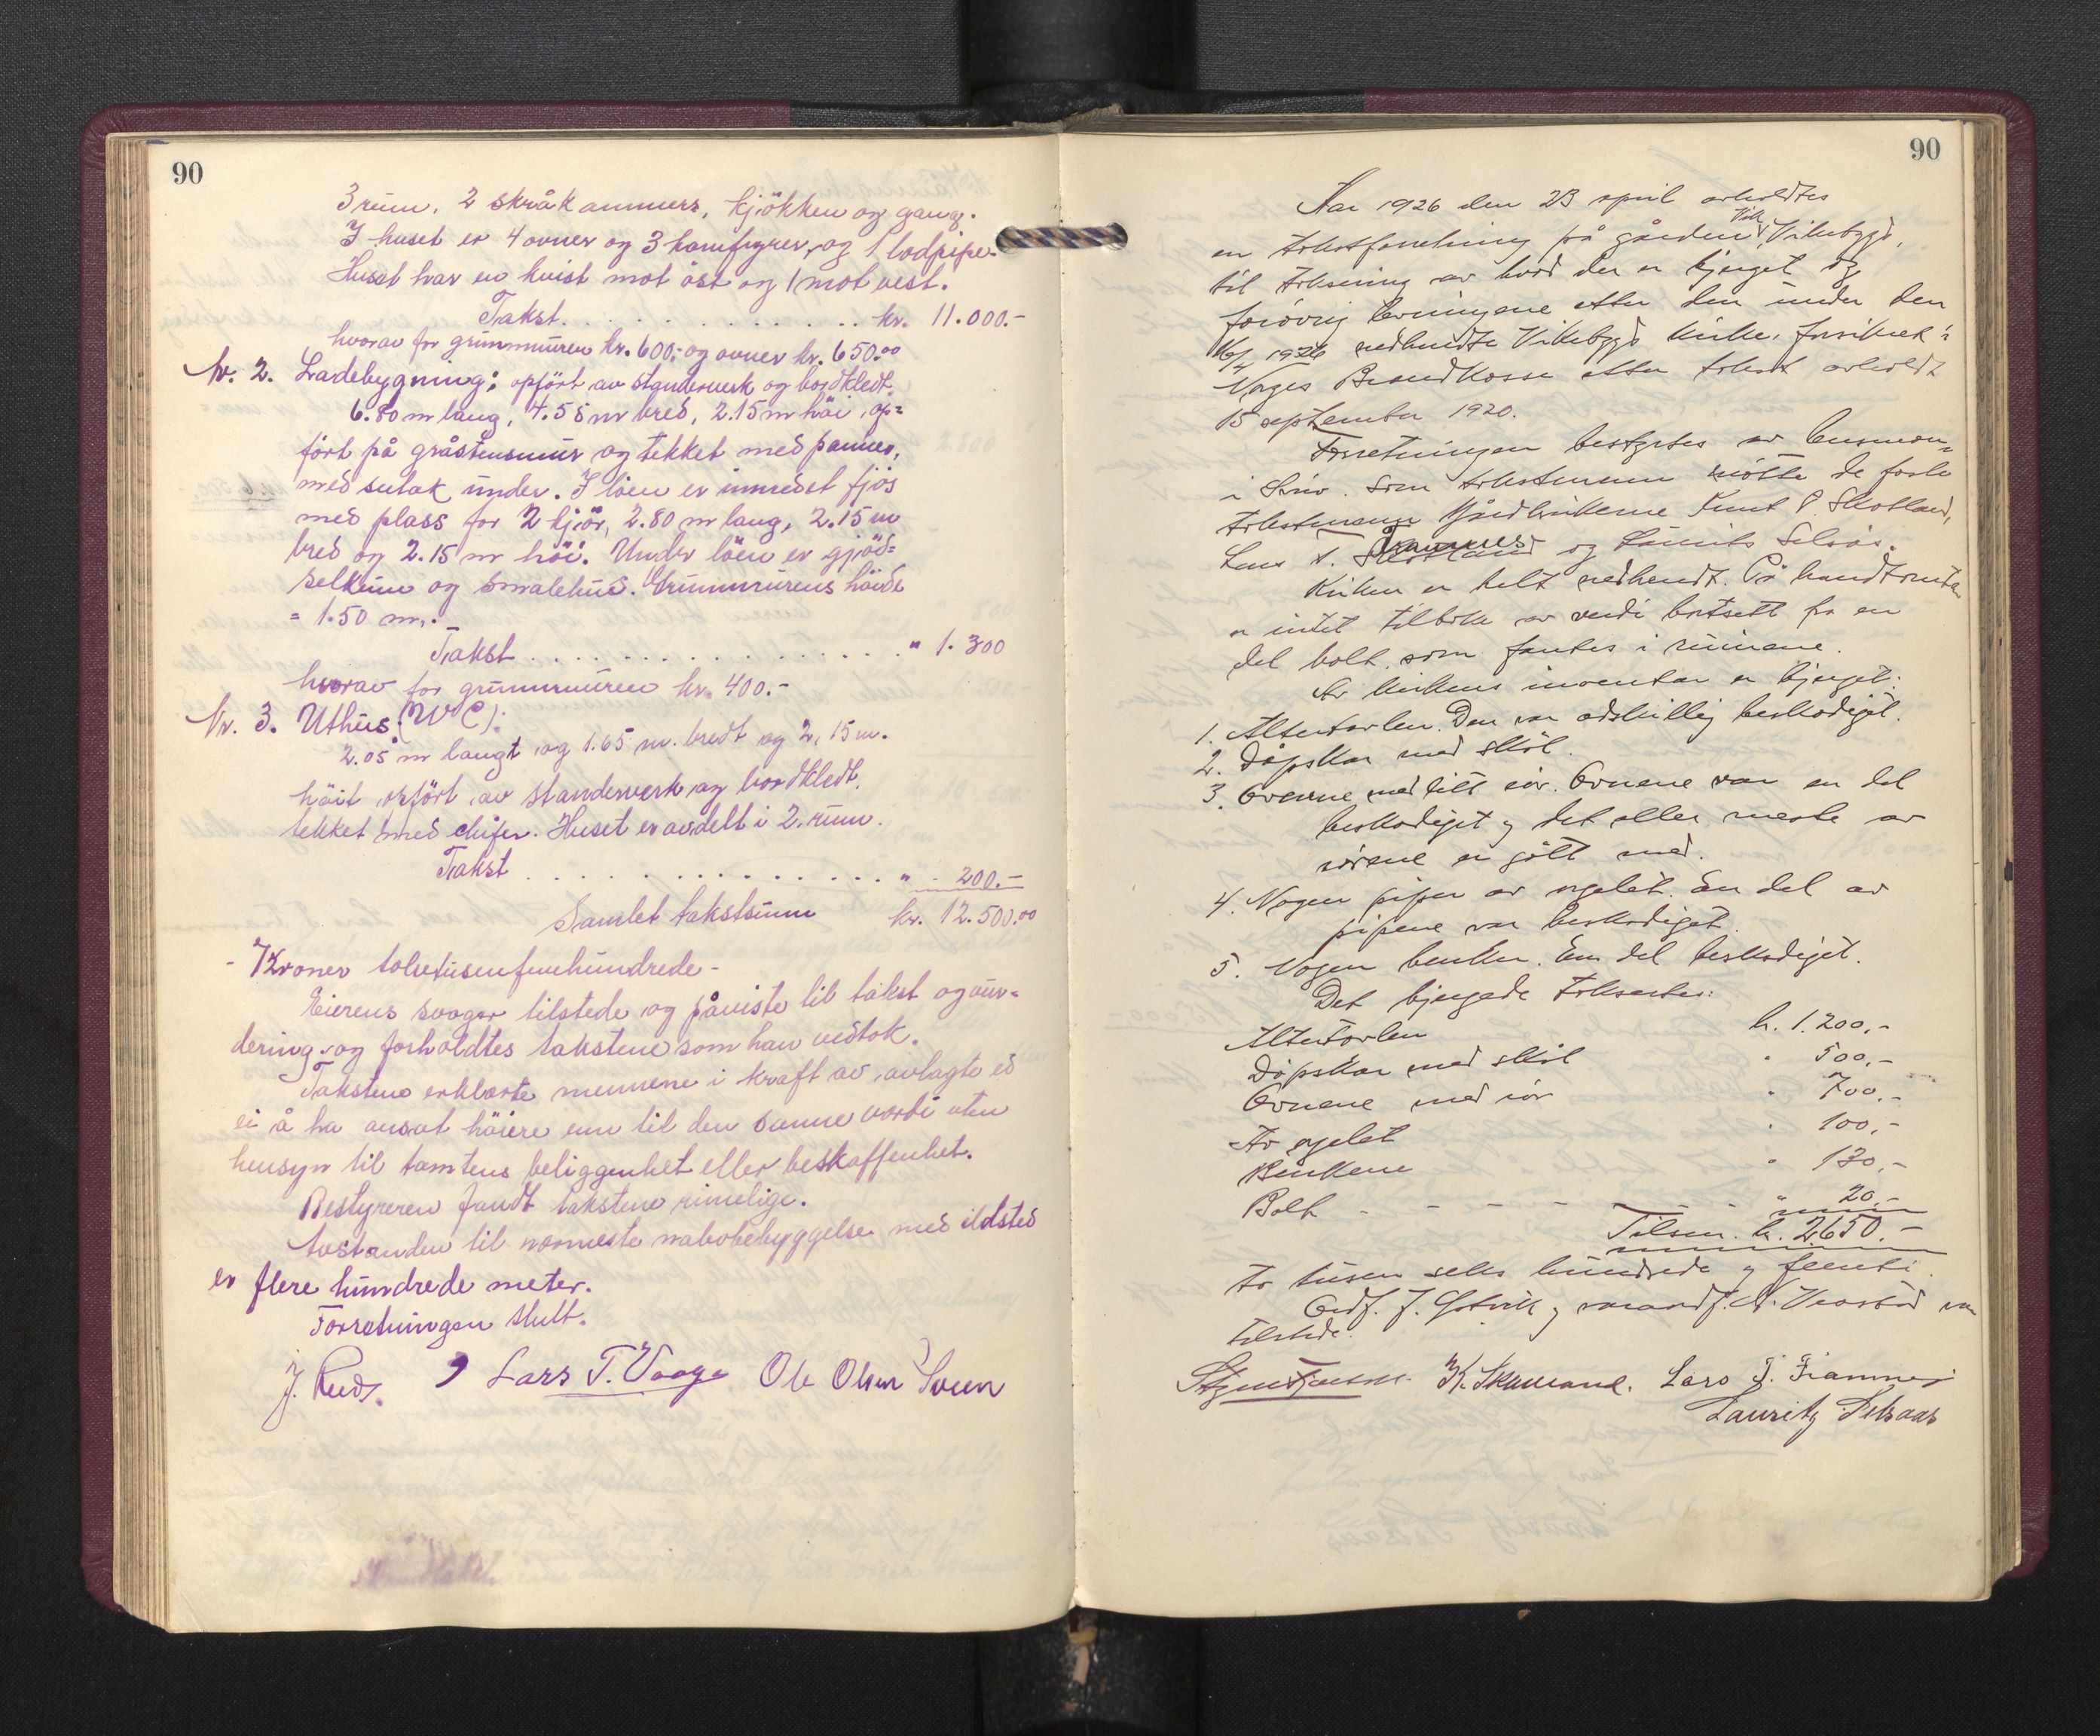 90
3 rum, 2 skråkammers, kjökken og gang.
I huset er 4 ovner og 3 komfyrer, og 1 lodpipe.
Huset har en kvist mot öst og 1 mot vest.
Takst . . . . . . . . . . . . kr. 11.000.-
hvorav for grunnmuren kr. 600,- og ovner kr. 650.00
Nr. 2. Ladebygning: opfört av standerverk og bordkledt.
6.80 m lang, 4.55 m bred, 2.15 m höi, op=
fört på gråstensmur og tekket med panner,
med sutak under. I löen er innredet fjös
med plass for 2 kjör, 2.80 m lang, 2.15 m
bred og 2.15 m höi. Under löen er gjöd=
selkum og smalehus. Grunnmurens höide
= 1.50 m.
Takst . . . . . . . . . . . . " 1.300
hvorav for grunnmuren kr. 400.-
Nr. 3. Uthus: (WC):
2.05 m langt og 1.65 m. bredt og 2,15 m.
höit opfört av standerverk og bordkledt,
tekket med skifer. Huset er avdelt i 2. rum.
Takst . . . . . . . . . . . . " 200.-
Samlet takstsum kr. 12.500.00
- Kroner tolvtusenfemhundrede -
Eierens svoger tilstede og påviste til takst og vur=
dering og forholdtes takstene som han vedtok.
Takstene erklærte mennene i kraft av avlagte ed
ei å ha ansat höiere enn til den sanne værdi uten
hensyn til tomtens beliggenhet eller beskaffenhet.
Bestyreren fandt takstene rimelige.
Avstanden til nærmeste nabobebyggelse med ildsted
er flere hundrede meter.
Forretningen slutt.
J. Rud. Lars T. Vaage Ole Olsen Sveen
90
Aar 1926 den 23 april avholdtes
en takstforretning på gården Vik, Vikebygd,
til taksering av hvad der er bjerget og
forövrig levningene etter den under den
16/4 1926 nedbrendte Vikebygd kirke, forsikret i
Norges Brandkasse etter takst avholdt
15 september 1920.
Forretningen bestyrtes av lensman=
i . Som takstmenn mötte de faste
takstmenn Gårdbrukerne Knut P. Skotland,
Lars T. Framnes og Laurits Selsås.
Kirken er helt nedbrendt. På branntomten
er intet tilbake av verdi bortsett fra en
del bolt, som fantes i ruinene.
Av kirkens inventar er bjerget:
1. Altertavlen. Den var adskillig beskadiget.
2. Döpskar med skål.
3. Ovnene med litt rör. Ovnene var en del
beskadiget og det aller meste av
rörene er gått med.
4. Nogen piper av orgelet. En del av
pipene var beskadiget.
5. Nogen benker. En del beskadiget.
Det bjergede takseertes:
Altertavlen kr. 1.200,-
Döpskar med skål " 500,-
Ovnene med rör " 700,-
Av orgelet " 100,-
Benkene " 130,-
Bolt - - - - - - - " 20,-
Tilsm. kr. 2650.-
To tusen seks hundrede og femti.
Ordf. J. og varaordf. N. var
tilstede.
K. Lars T. Framnes
Lauritz Selsaas